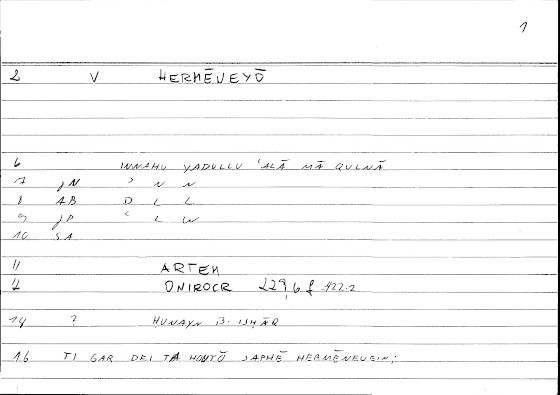 1
2 V HERMĒNEYŌ
6 INNAHU YADULLU ʿALĀ MĀ QULNĀ
7 JN ʾ N N
8 AB D L L
9 JP ʿ L W
10 SA
11 ARTEM
12 ONIROCR 229,6 f 422.2
14 ? HUNAYN B. ISḤĀQ
16 TI GAR DEI TA HOUTŌ SAPHĒ HERMĒNEUEIN;